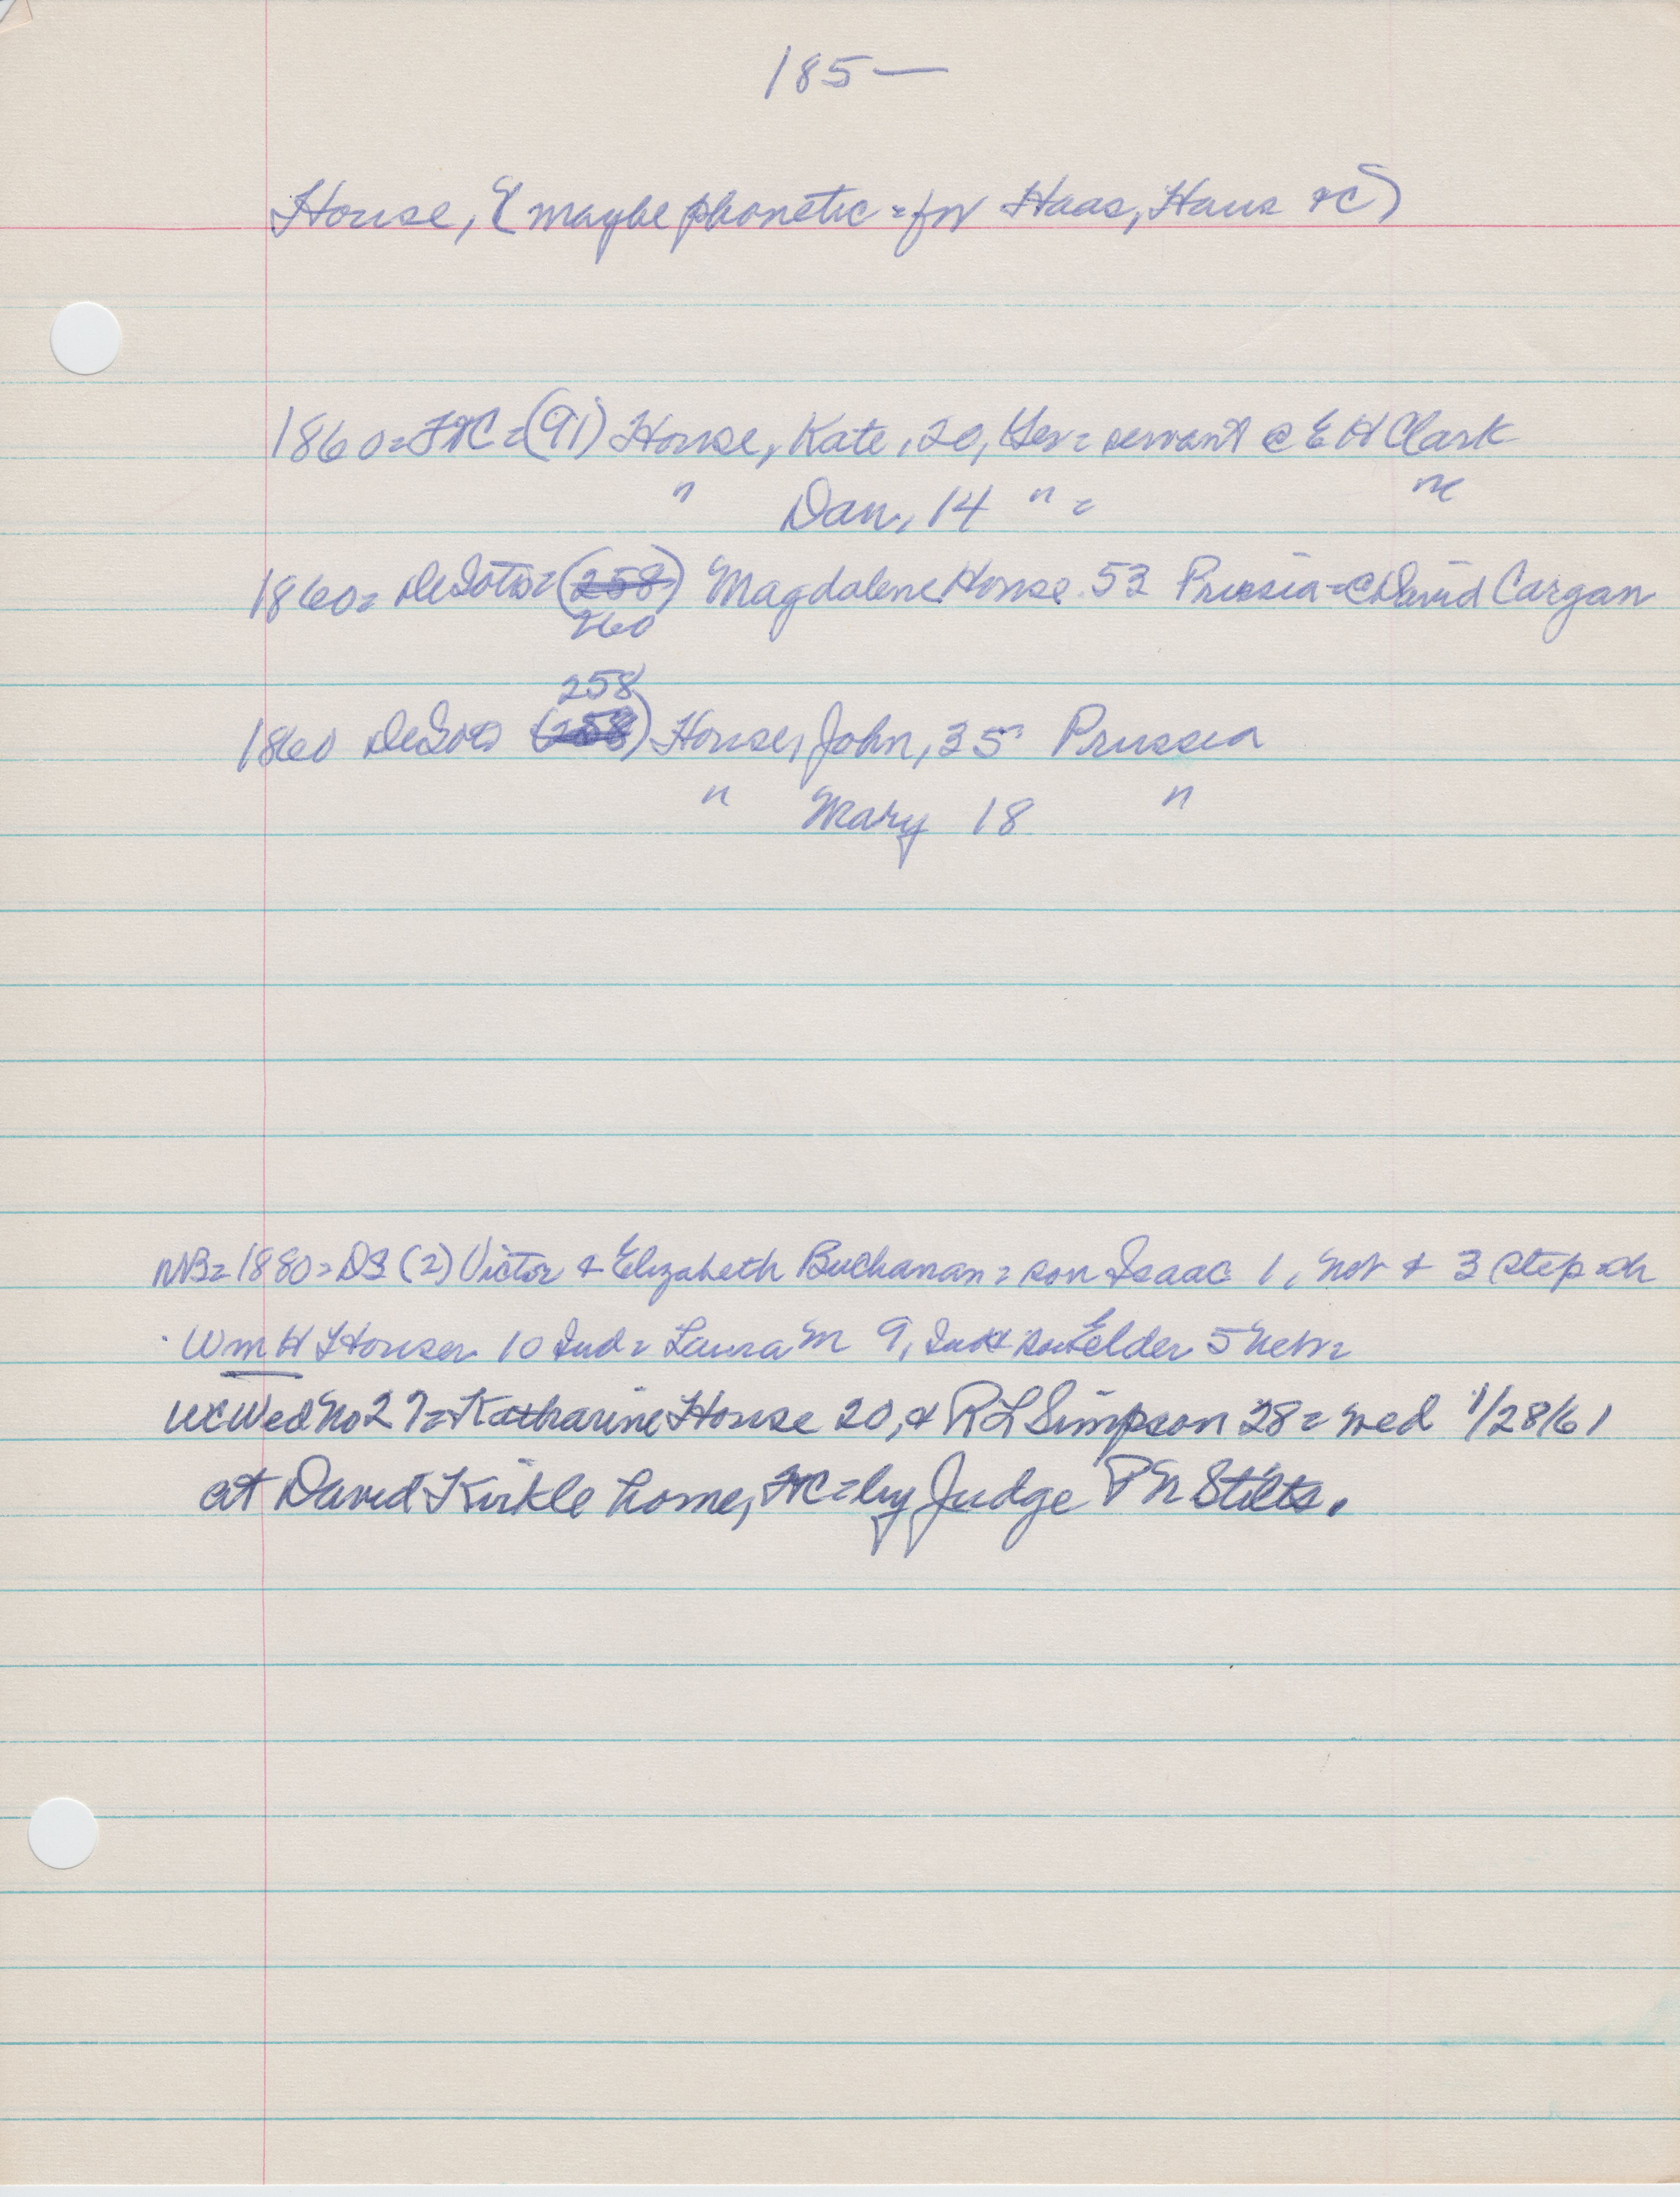 185—
House, (maybe phonetic = for Haas, Haus &C)
1860 = FtC = (91) House, Kate, 20, Ger = servant @ E H Clark
" Dan, 14 " = "
1860 = DeSoto = (258) Magdalene House 53 Prussia = @ David Cargan
260
258
1860 DeSoto (258) House, John, 35 Prussia
" Mary 18 "
NB = 1880 = DS (2) Victor & Elizabeth Buchanan = son Isaac 1, & 3 step ch
Wm H Houser 10 Ind = Laura M 9, Elder 5 Nebr =
WC Wed No 27 = Katharine House 20, & R L Simpson 28 = wed 1/28/61
at David Kirkle home, FtC = by Judge P N Stilts.